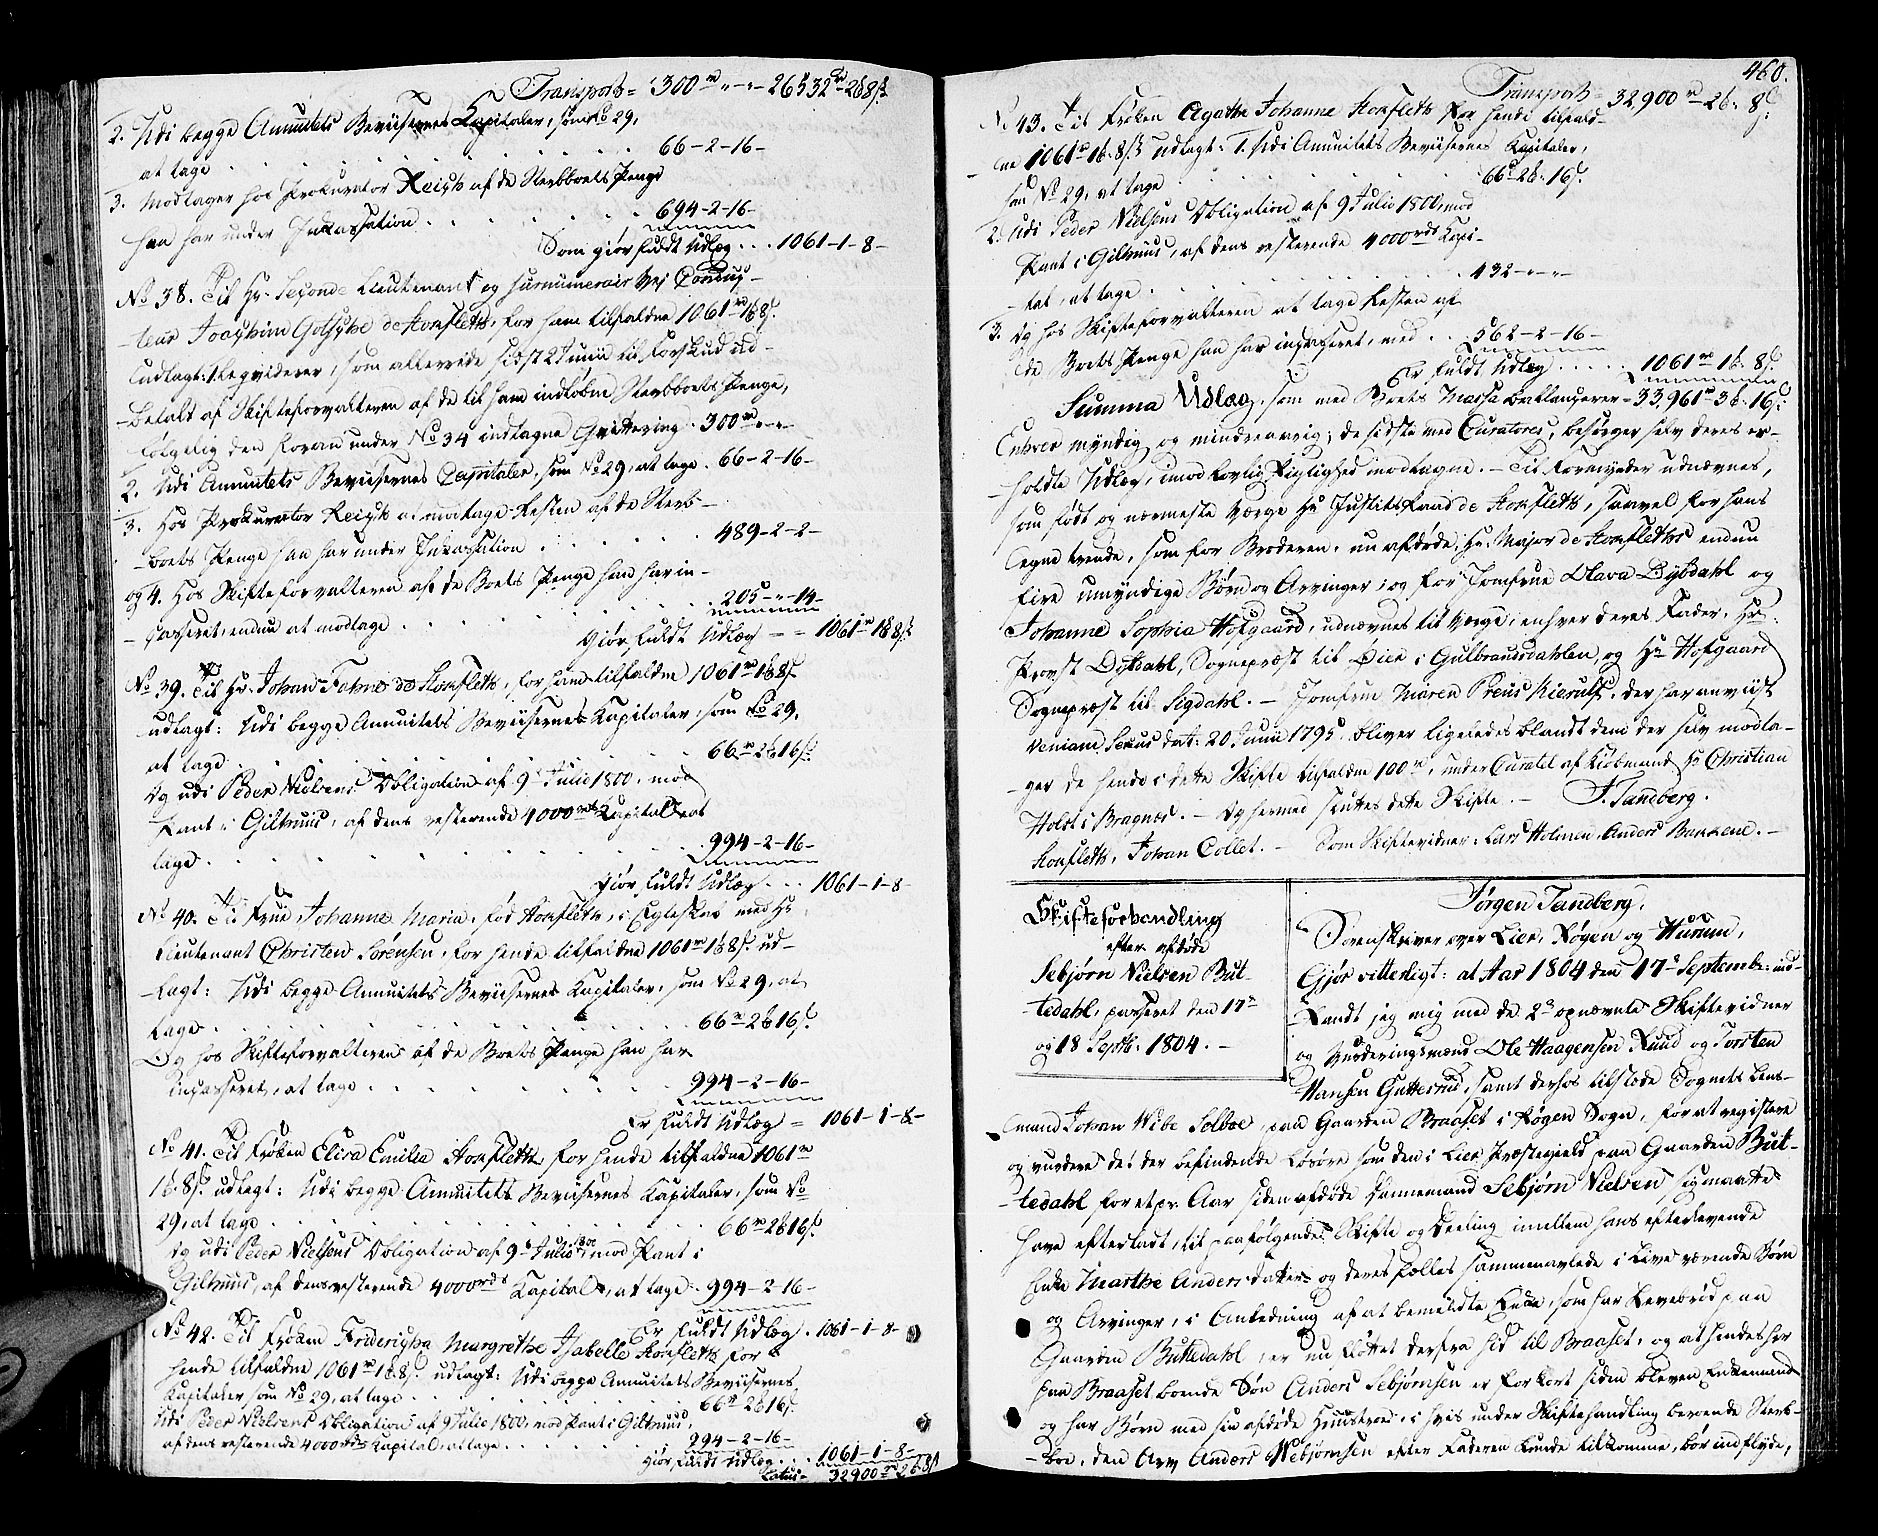 Transport = 300rd „-„- 26532rd-2ß8ß
2. Udi begge Annuitets Beviisernes Kapitaler, som No 29,
at tage . . . 66-2-16-
3. Modtager hos Prokurator Reich af de Sterbboets Penge
han har under Inkassation . . . 694-2-16-
Som giør fuldt Udlæg . . . 1061-1-8-
No 38. Til Hr. Seconde Lieutenant og surnumerair Vej Conduc-
-teur Joachim Gotsche de Honfleth, for ham tilfaldne 1061rd 1ß8ß
udlagt: 1. Leqviderer, som allerede sidst 21 Junii til Forskud ud-
-betalt af Skifteforvalteren af de til ham indkobne Sterbboets Penge,
følgelig den foran under No 34 indtagne Qvittering . 300rd „-„-
2. Udi Annuitets Beviisernes Capitaler, som No 29, at tage . 66-2-16-
3. Hos Prokurator Reich at modtage Resten af de Sterb-
-boets Penge han har under Inkassation . . . 489-2-2-
og 4. Hos Skifteforvalteren af de Boets Penge han har in-
-casseret, endnu at modtage . . . 205-„-14-
Giør fuldt Udlæg - - 1061rd 1ß8ß
No 39. Til Hr. Johan Fohne de Honfleth, for ham tilfaldne 1061rd 1ß8ß
udlagt: Udi begge Annuitets Beviisernes Kapitaler, som No 29,
at tage . . . 66rd 2ß16ß
Og udi Peder Nielsens Obligation af 9 Julio 1800, mod
Pant i Gilhuus, af dens resterende 4000rds Kapital at
tage . . . 994-2-16-
Giør fuldt Udlæg . . . 1061-1-8-
No 40. Til Frue Johanne Maria, fød Honfleth, i Egteskab med Hr
Lieutenant Christen Sørensen, for hende tilfaldne 1061rd 1ß8ß ud-
-lagt: Udi begge Annuitets Beviisernes Kapitaler, som No 29, at
tage . . . 66rd 2ß16ß
Og hos Skifteforvalteren af de Boets Penge han har
incasseret, at tage . . . 994-2-16-
Er fuldt Udlæg = 1061-1-8-
No 41. Til Frøken Elisa Emilia Honfleth for hende tilfaldne 1061rd
1ß 8ß udlagt: Udi begge Annuitets Beviisernes Kapitaler, som No
29, at tage . . . 66rd 2ß16ß
Og udi Peder Nielsens Obligation af 9 Julio 1800 mod Pant i
Gilhuus, af dens resterende 4000rds Kapital, at tage . 994-2-16-
Er fuldt Udlæg . 1061-1-8-
No 42. Til Frøken Fridericha Margrethe Isabelle Honfleth for
hende tilfaldne 1061rd 1ß8ß udlagt: Udi begge Annuitets Beviisernes
Kapitaler som No 29, at tage . . . 66rd 2ß16ß
Udi Peder Nielsens Obligation af 9 Julio 1800, mod Pant i Gilhuus,
af dens resterende 4000rds Kapital, at tage . . . 994-2-16-
Giør fuldt Udlæg . . . 1061-1-8-
Latus = 32900rd 2ß 8ß
460.
Transport = 32,900rd 2ß 8ß
No 43. Til Frøken Agathe Johanne Honfleth for hende tilfald-
-ne 1061rd 1ß 8ß udlagt: 1. Udi Annuitets Beviisernes Kapitaler,
som No 29, at tage . . . 66rd 2ß 16ß
2. Udi Peder Nielsens Obligation af 9 Julio 1800, mod
Pant i Gilhuus, af dens resterende 4000rds Kapi-
-tal, at tage . . . 432-„-„-
3. Og hos Skifteforvalteren at tage Resten af
de Boets Penge han har incasseret, med . . 562-2-16-
Er fuldt Udlæg . . . 1061rd 1ß 8ß
Summa Udlæg, som med Boets Massa ballancerer = 33,961rd 3ß 16ß
Enhver myndig og mindreaarig; de sidste med Curatores, besørger selv deres er-
-holdte Udlæg, imod lovlig Rigtighed modtagne. - Til Formynder udnævnes,
som født og nærmeste Værge Hr Justitsraad de Honfleth, saavel for hans
egne trende, som for Broderen, nu afdøde Hr. Major de Honfleths endnu
fire umyndige Børn og Arvinger; og for Jomfrue Olava Dybdahl og
Johanne Sophia Hofgaard, udnævnes til Værge, enhver deres Fader, Hr
Provst Dybdahl, Sognepræst til Øier i Gulbrandsdahlen og Hr Hofgaard
Sognepræst til Sigdahl. - Jomfrue Maren Preus Kierulf, der har anviist
Veniam Sexus dat: 20 Junii 1795, bliver ligeledes blandt dem der selv modta-
-ger de hende i dette Skifte tilfaldne 100rd, under Curatel af Kiøbmand Hr Christian
Holst i Bragnes. - Og hermed sluttes dette Skifte. - J. Tandberg.
Honfleth, Johan Collet. - Som Skiftevidner: Lars Holmen, Anders Bakkene. -
Skifteforhandling
efter afdøde
Sebjørn Nielsen But-
tedahl, passeret den 17de
og 18 Septb: 1804. -
Jørgen Tandberg,
Sorenskriver over Lier, Røgen og Hurum,
Gjør vitterligt: at Aar 1804 den 17de Septembr: ind-
-fandt jeg mig med de 2de opnævnte Skiftevidner
og Vurderingsmænd Ole Haagensen Ruud og Torsten
Hansen Gutterud, samt derhos tilstæde Sognets Lens-
-mand Johan Wibe Solboe, paa Gaarden Braaset i Røgen Sogn, for at registere
og vurdere det der befindende Løsøre som den i Lier Præstegield paa Gaarden But-
-tedahl for et pr. Aar siden afdøde Dannemand Sebjørn Nielsen, sig maatte
have efterladt, til paafølgende Skifte og Deeling imellem hans efterlevende
Enke Marthe Anders datter og deres fælles sammenavlede i Live værende Børn
og Arvinger, i Anledning af at bemeldte Enke, som har Levebrød paa
Gaarden Buttedahl, er nu fløttet derfra hid til Braaset, og at hendes her
paa Braaset boende Søn Anders Sebjørnsen er for kort siden bleven Enkemand
og har Børn med sin afdøde Huustroe, i hvis under Skiftehandling beroende Sterb-
-boe, den Arv Anders Sebjørnsen efter Faderen kunde tilkomme, bør indflyde,